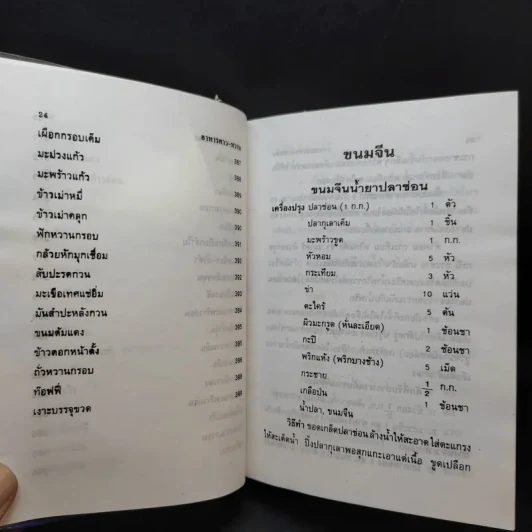 24
อาหารคาว-หวาน
เผือกกรอบเค็ม 387
มะม่วงแก้ว 387
มะพร้าวแก้ว 388
ข้าวเม่าหมี่ 389
ข้าวเม่าคลุก 389
ฟักหวานกรอบ 390
กล้วยหักมุกเชื่อม 391
สับปะรดกวน 392
มะเขือเทศแช่อิ่ม 392
มันสำปะหลังกวน 393
ขนมต้มแดง 394
ข้าวตอกหน้าตั้ง
ถั่วหวานกรอบ
ท๊อฟฟี่
เงาะบรรจุขวด
ขนมจีน
ขนมจีนน้ำยาปลาช่อน
เครื่องปรุง ปลาช่อน (1 ก.ก.) 1 ตัว
ปลากุเลาเค็ม 1 ชิ้น
มะพร้าวขูด 1 ก.ก.
หัวหอม 5 หัว
กระเทียม 3 หัว
ข่า 10 แว่น
ตะไคร้ 5 ต้น
ผิวมะกรูด (หั่นละเอียด) 1 ช้อนชา
กะปิ 2 ช้อนชา
พริกแห้ง (พริกบางช้าง) 5 เม็ด
กระชาย 1/2 ก.ก.
เกลือป่น 1 ช้อนชา
น้ำปลา, ขนมจีน
วิธีทำ ขอดเกล็ดปลาช่อน ล้างน้ำให้สะอาด ใส่ตะแกรง
ให้สะเด็ดน้ำ ปิ้งปลากุเลาพอสุกแกะเอาแต่เนื้อ ขูดเปลือก